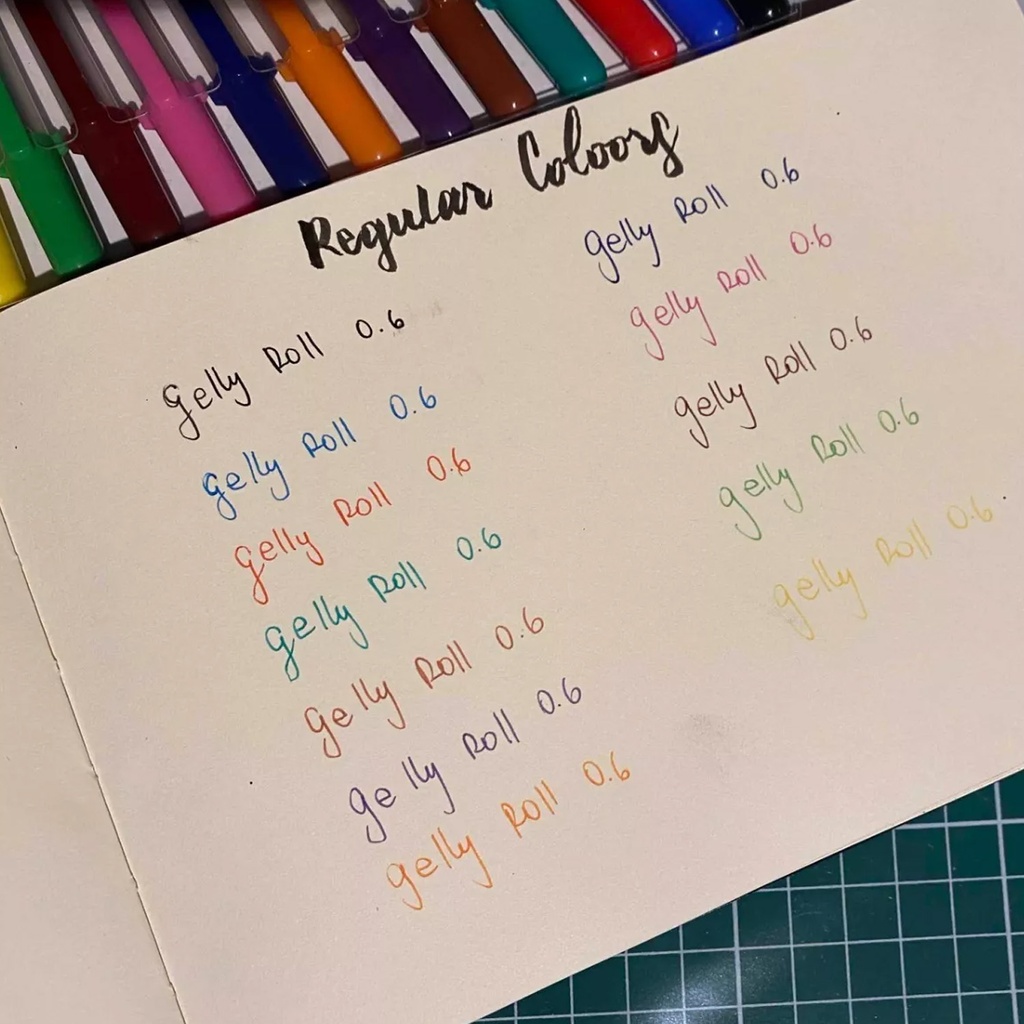 Regular Coloors
gelly Roll 0.6
gelly Roll 0.6
gelly Roll 0.6
gelly Roll 0.6
gelly Roll 0.6
gelly Roll 0.6
gelly Roll 0.6
gelly Roll 0.6
gelly Roll 0.6
gelly Roll 0.6
gelly Roll 0.6
gelly Roll 0.6